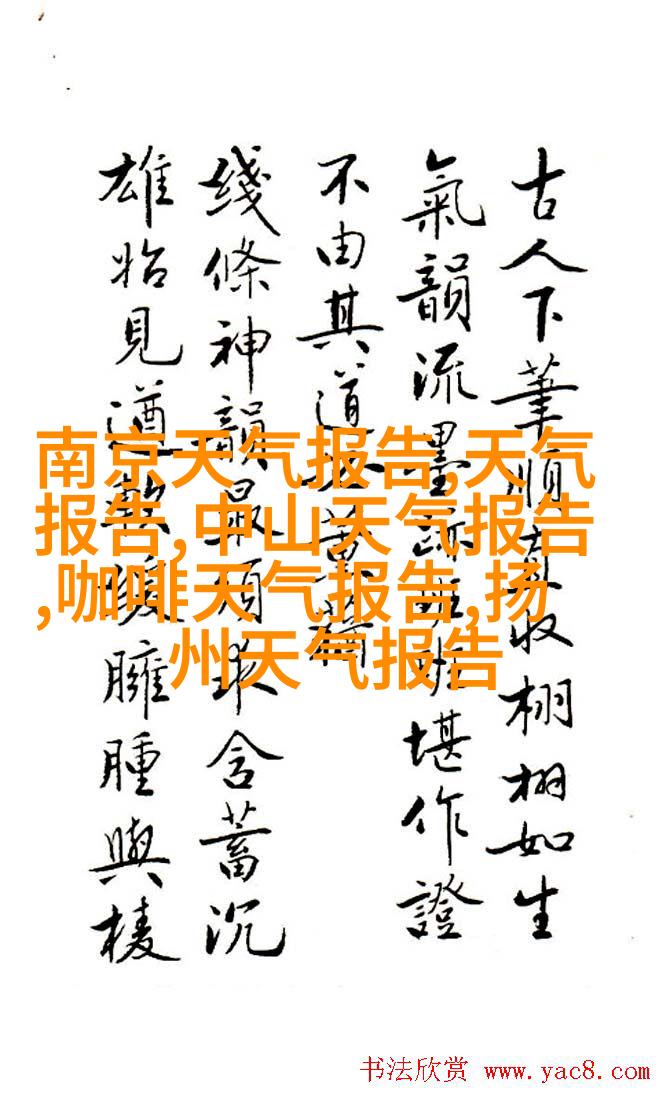 古人下筆順
收栩栩如生
氣韻流墨
班堪作證
不由其道
綫條神韻最
含蓄沉
雄始見遒
臃腫與棱
南京天气报告,天气
报告,中山天气报告
,咖啡天气报告,扬
州天气报告
书法欣赏 www.yac8.com